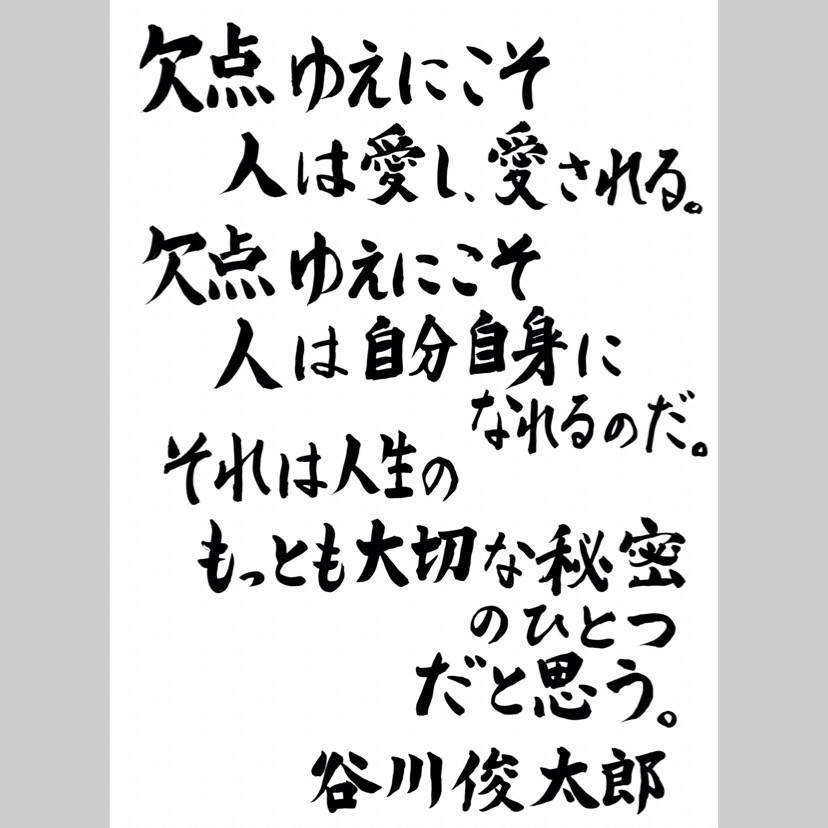 欠点ゆえにこそ
人は愛し、愛される。
欠点ゆえにこそ
人は自分自身に
なれるのだ。
それは人生の
もっとも大切な秘密
のひとつ
だと思う。
谷川俊太郎